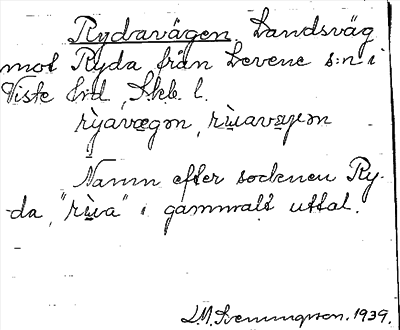 Rydavägen. Landsväg
mot Ryda från Levene s:n i
Viste hd, Skb. l.
rỳavægən, rùavægən
Namn efter socknen Ry-
da, "rùa" i gammalt uttal.
1939.